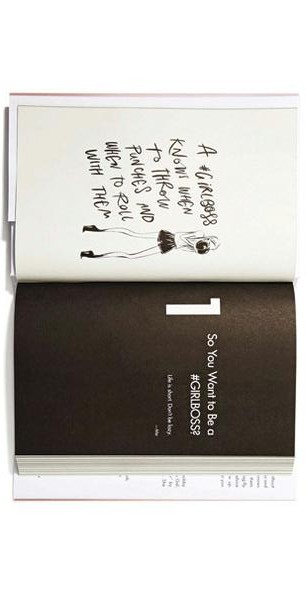 A #GIRLBOSS
KNOWS WHEN
TO THROW
PUNCHES AND
WHEN TO ROLL
WITH THEM
1
So You Want to Be a
#GIRLBOSS?
Life is short. Don't be lazy.
—Me